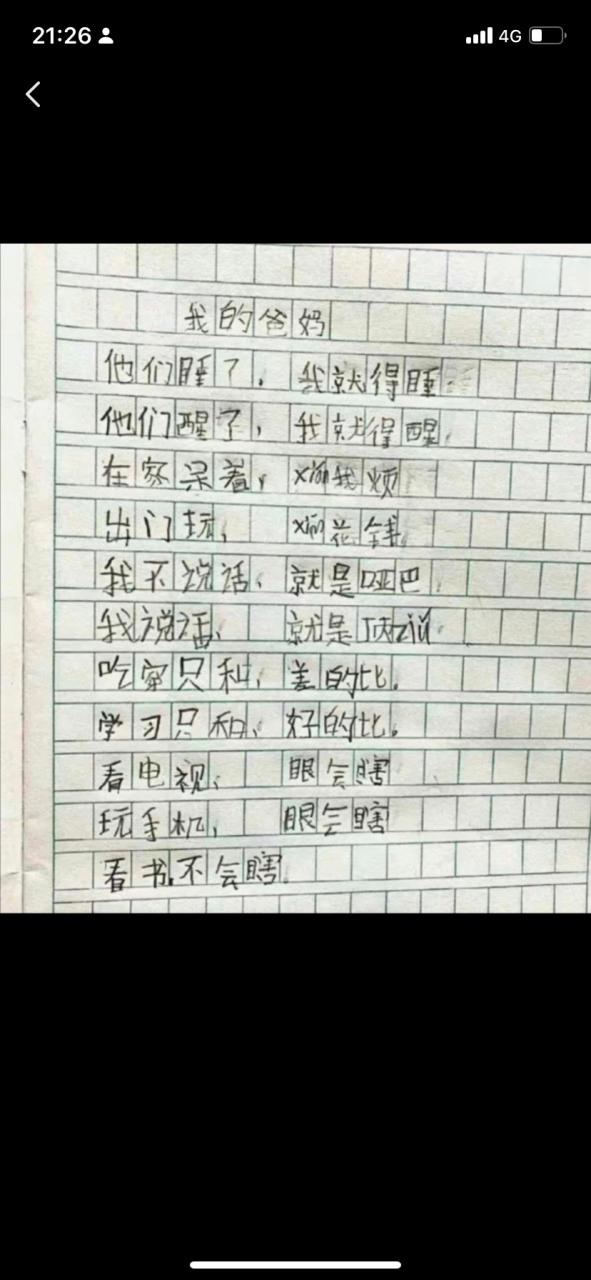 21:26
4G
我的爸妈
他们睡了，我就得睡
他们醒了，我就得醒，
在家呆着，xián我烦
出门玩，xián花钱
我不说话，就是哑巴，
我说话，就是顶zuǐ，
吃穿只和，差的比。
学习只和，好的比。
看电视，眼会瞎
玩手机，眼会瞎
看书不会瞎。